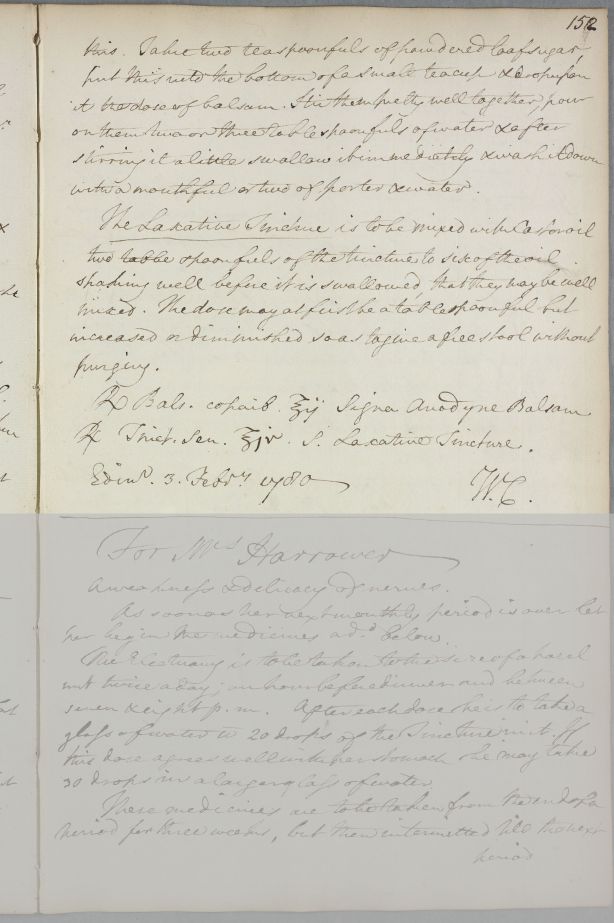 152
this. Take two teaspoonfuls of powdered loaf sugar
put this into the bottom of a small teacup & drop upon
it the dose of balsam. Stir them pretty well together, pour
on them two or three tablespoonfuls of water & after
stirring it a little swallow it immediately & wash it down
with a mouthful or two of porter & water.
The Laxative Tincture is to be mixed with Castor oil
two table spoonfuls of the tincture to six of the oil
shaking well before it is swallowed, that they may be well
mixed. The dose may at first be a tablespoonful but
increased or diminished so as to give a free stool without
purging.
℞ Bals. copaib. ℥ij Signa Anodyne Balsam
℞ Tinct. Sen. ℥iv. S. Laxative Tincture.
Edinr. 3. Febry. 1780
W.C.
For Mrs Harrower
A weakness & delicacy of nerves.
As soon as her next monthly period is over let
her begin the medicines add below.
The Electuary is to be taken to the size of a hazel
nut twice a day; an hour before dinner and between
seven & eight p.m. After each dose she is to take a
glass of water wt 20 drops of the Tincture in it. If
this dose agrees well with her stomach she may take
30 drops in a larger glass of water
These medicines are to be taken from the end of a
period for three weeks, but then intermitted till the next
period